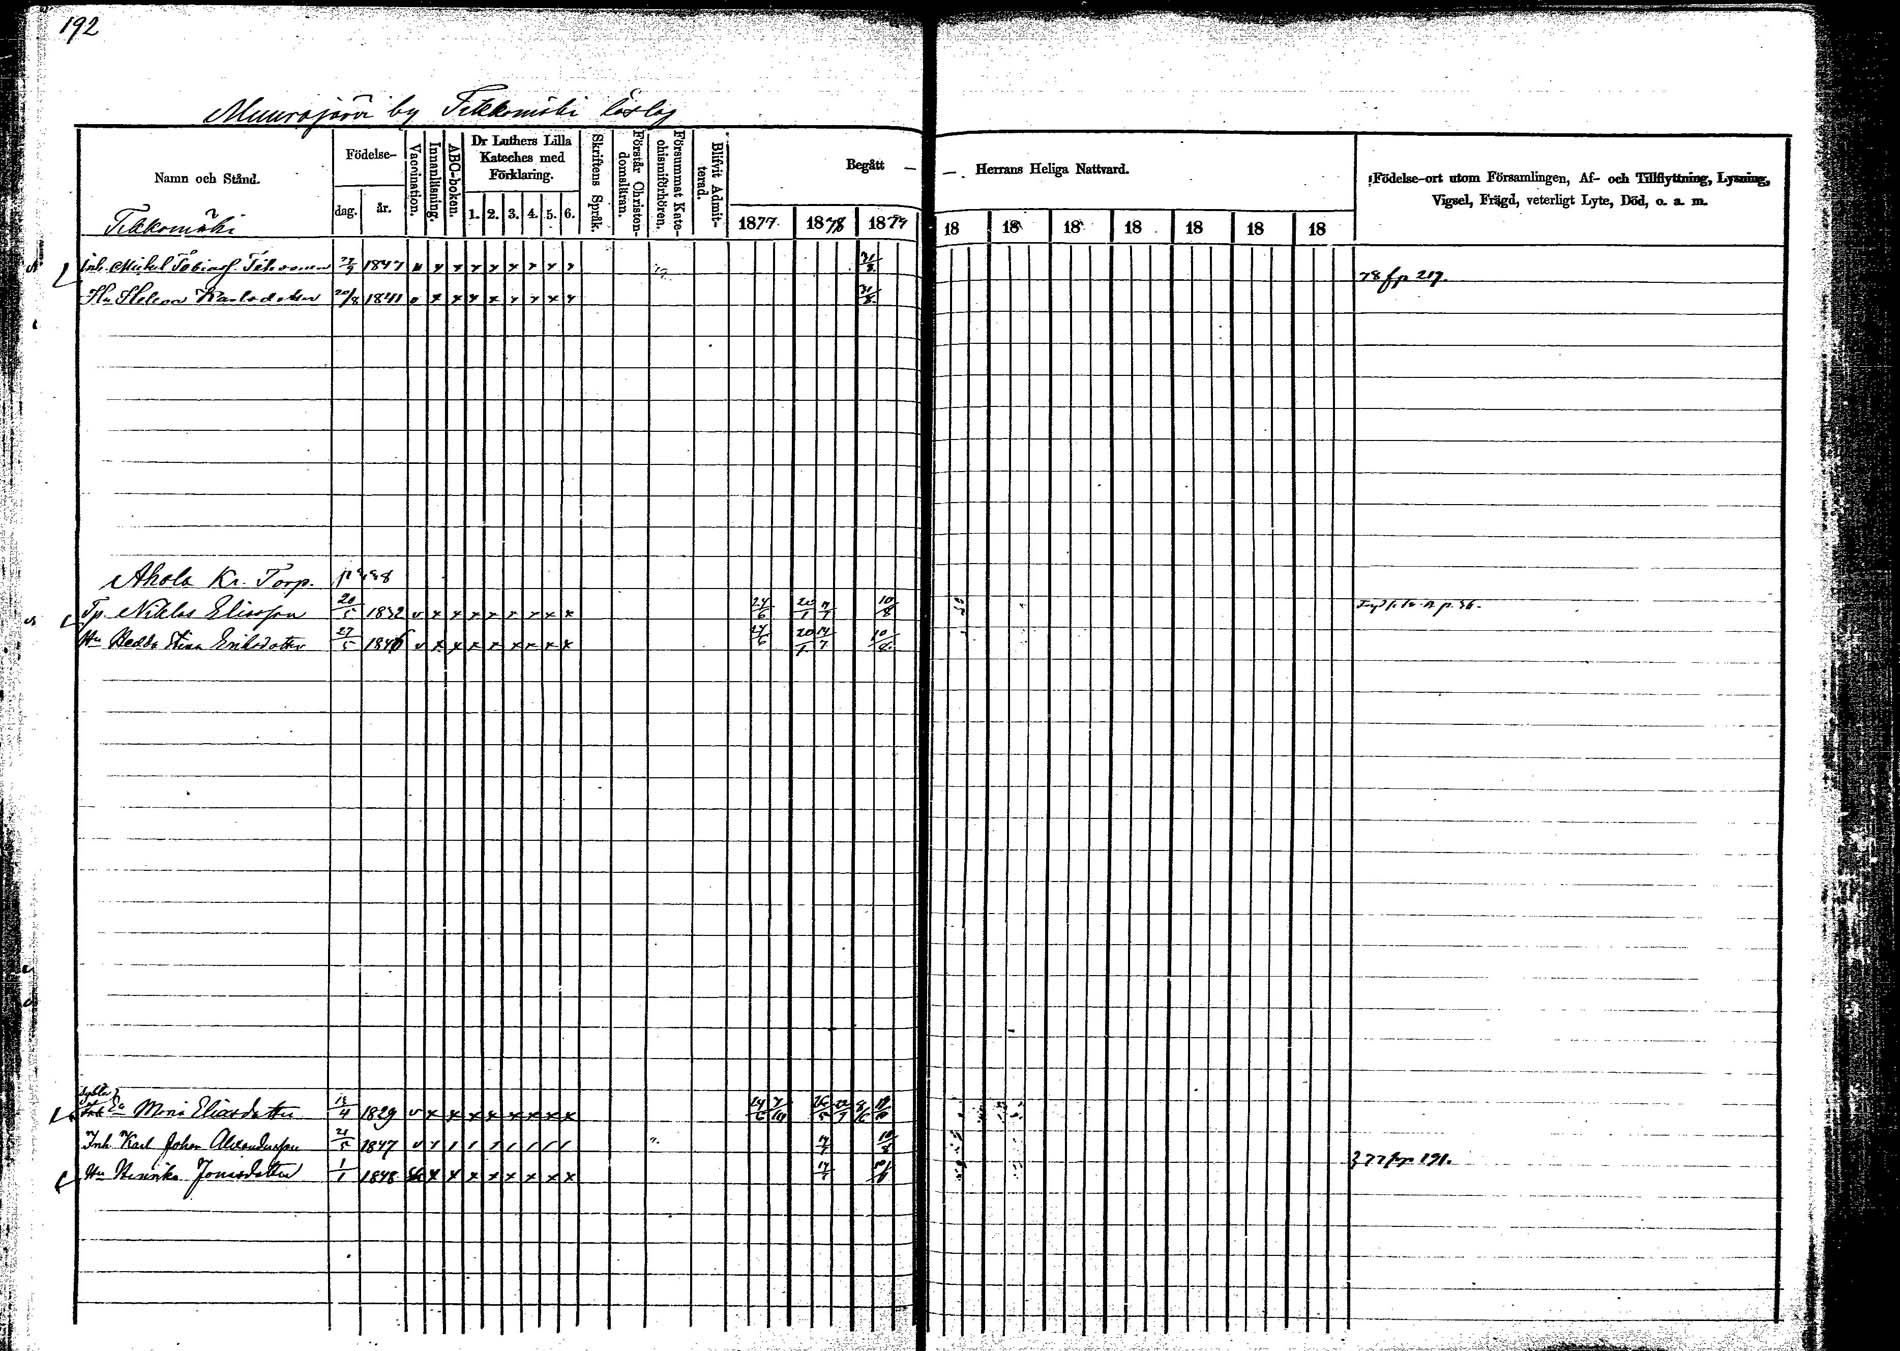 192
Muurasjärvi by Tikkomäki löslag
Namn och Stånd.
Födelse-
dag. år.
Vaccination.
Innanläsning.
ABC-boken.
Dr Luthers Lilla
Kateches med
Förklaring.
1. 2. 3. 4. 5. 6.
Skriftens Språk.
Förstår Christen-
domsläran.
Försummat Kate-
chismiförhören.
Blifvit Admit-
terad.
Begått —
1877 1878 1879
— Herrans Heliga Nattvard.
18 18 18 18 18 18 18
Födelse-ort utom Församlingen, Af- och Tillflyttning, Lysning,
Vigsel, Frägd, veterligt Lyte, Död, o. a. m.
Tikkomäki
Inh. Mickel Tobiasf. 1847 x x x x x x x x 31/8 78 fr p 217.
Hu Helena Karlsdotter 20/8 1841 x x x x x x x x 31/8
Ahola Kr. Torp.
Tp. Niklas Eliasson 20/5 1832 v x x x x x x x x 24/6 20/1 10/8
Hu Hedda Stina Eriksdotter 27/5 1846 v x x x x x x x x 24/6 20/1 17/7 10/8
Maria Eliasdotter 1829 v x x x x x x x x
Inh. Karl Johan Alexandersson 21/5 1847 v 1 1 1 1 1 1 1 1 17/7 10/8
Hu Henrika Jonasdotter 1/1 1848 x x x x x x x x 17/7 77 fr p 191.